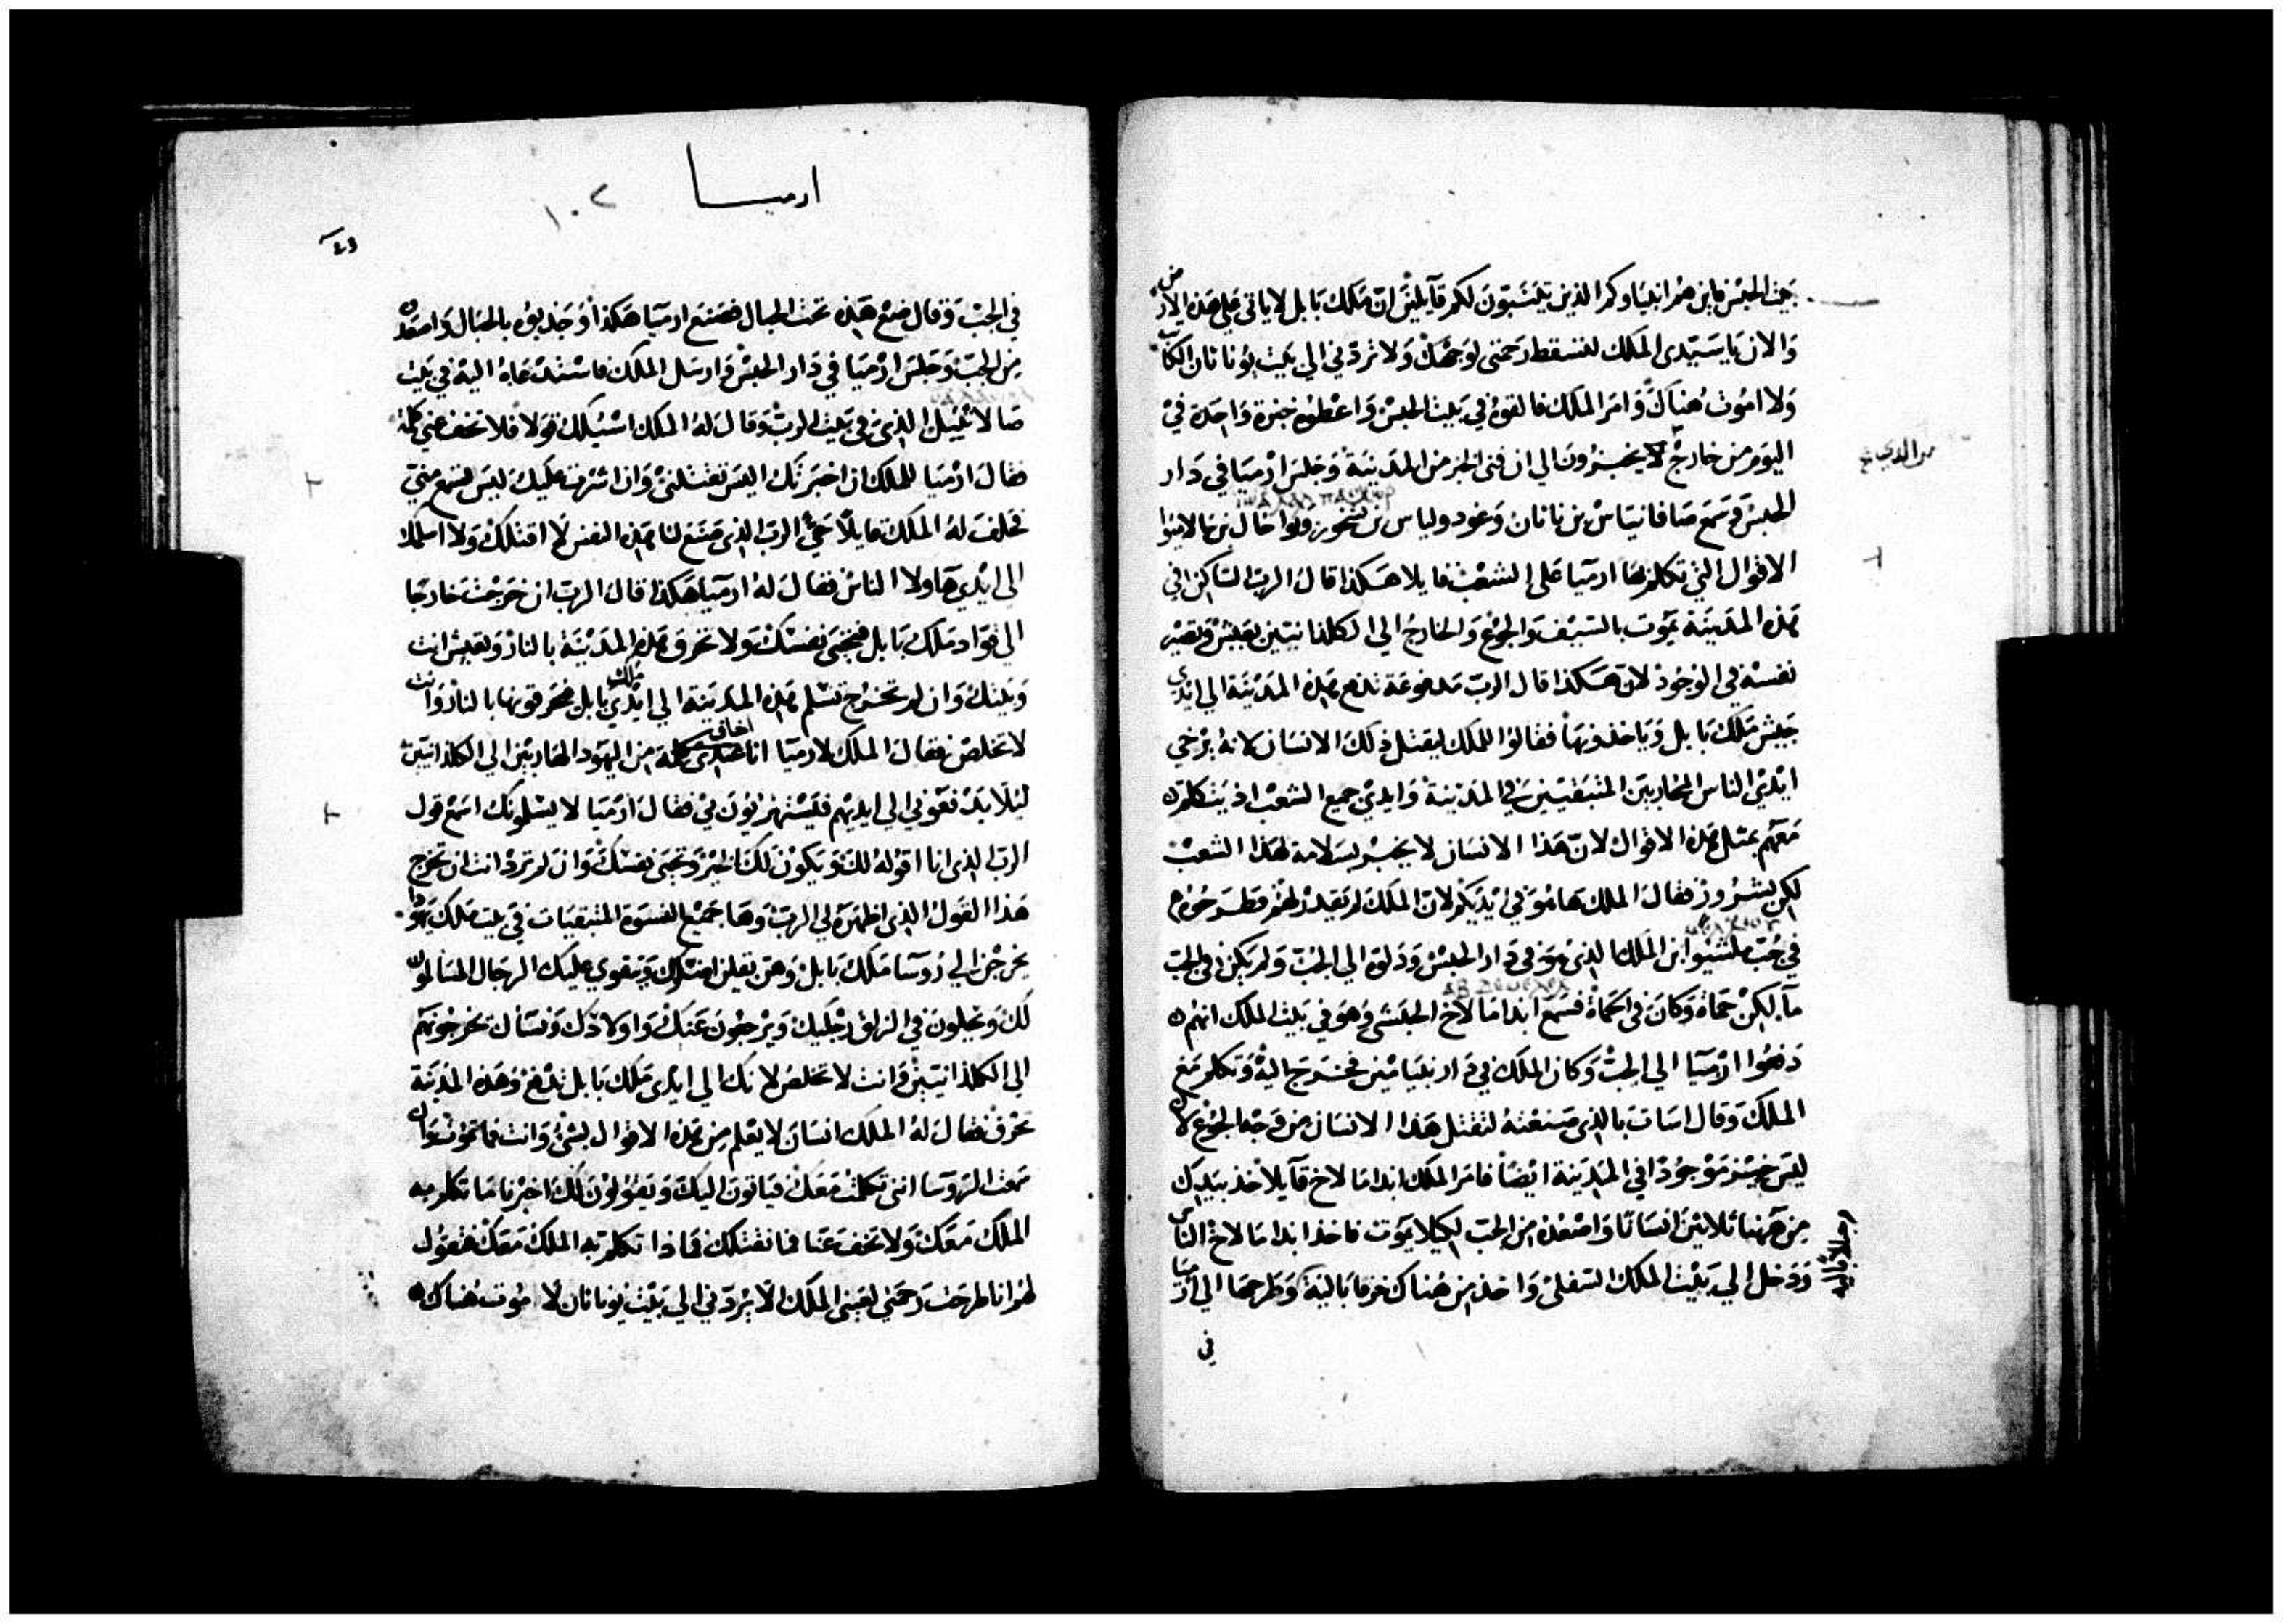 بيت الحبس فاين هم انبياوكم الذين يتنبون لكم قايلين ان ملك بابل لا ياتي على هذه الارض
والان يا سيدي الملك لتسقط رحمتي لوجهك ولا تردني الى بيت يوناثان الكاتب
ولا اموت هناك وامر الملك فالقوه في بيت الحبس واعطوه خبزة واحدة في
اليوم من خارج لا يخبزون الى ان فنى الخبز من المدينة وجلس ارميا في دار
الحبس وسمع صافانياس بن ناثان وغودولياس بن
الاقوال التي تكلم بها ارميا على الشعب قايلا هكذا قال الرب الساكن في
هذه المدينة يموت بالسيف والجوع والخارج الى الكلدانيين يعيش وتصير
نفسه في الوجود لان هكذا قال الرب مدفوعة تدفع هذه المدينة الى ايدي
جيش ملك بابل وياخذونها فقالوا للملك ليقتل ذلك الانسان لانه يرخي
ايدي الناس المحاربين المتبقيين في المدينة وايدي جميع الشعب اذ يتكلم
معهم بمثل هذه الاقوال لان هذا الانسان لا يخبر بسلامة لهذا الشعب
لكن بشرور فقال الملك ها هو في ايديكم لان الملك لم يقدر لهم فطرحوه
في جب ملشيو ابن الملك الذي هو في دار الحبس ودلوه الى الجب ولم يكن في الجب
ما لكن حماة وكان في الحماة فسمع ابدامالاخ الحبشي وهو في بيت الملك انهم
دفعوا ارميا الى الجب وكان الملك في دار بنيامين فخرج اليه وتكلم مع
الملك وقال اسات بالذي صنعته لتقتل هذا الانسان من وجه الجوع لان
ليس خبز موجودا في المدينة ايضا فامر الملك ابدامالاخ قايلا خذ بيديك
من هاهنا ثلاثين انسانا واصعده من الجب لكيلا يموت فاخذ ابدامالاخ الناس
ودخل الى بيت الملك السفلي واخذ من هناك خرقا بالية وطرحها الى ارميا
في
ارميا
١٠٢
في الجب وقال ضع هذه تحت الحبال فصنع ارميا هكذا وجذبوه بالحبال واصعدوه
من الجب وجلس ارميا في دار الحبس وارسل الملك فاستدعاه اليه في بيت
الذي في بيت الرب وقال له الملك اسيلك قولا فلا تخف عني كلمة
فقال ارميا للملك ان اخبرتك اليس تقتلني وان اشرت عليك ليس تسمع مني
فحلف له الملك قايلا حي الرب الذي صنع لنا هذه النفس لا اقتلك ولا اسلمك
الى ايدي هاولا الناس فقال له ارميا هكذا قال الرب ان خرجت خارجا
الى قواد ملك بابل فتحيى نفسك ولا تحرق هذه المدينة بالنار وتعيش انت
وبيتك وان لم تخرج تسلم هذه المدينة الى ايدي ملك بابل فيحرقونها بالنار وانت
لا تخلص فقال الملك لارميا انا اخاف من اليهود الهاربين الى الكلدانيين
ليلا يدفعوني الى ايديهم فيستهزيون بي فقال ارميا لا يسلمونك اسمع قول
الرب الذي انا اقوله لك ويكون لك الخير وتحيى نفسك وان لم ترد انت ان تخرج
هذا القول الذي اظهره لي الرب وها جميع النسوة المتبقيات في بيت ملك يهوذا
يخرجن الى روسا ملك بابل وهن يقلن اضلك وتقوى عليك الرجال المسالمون
لك ويحلون في الزلق رجليك ويرجعون عنك واولادك ونساك يخرجونهم
الى الكلدانيين وانت لا تخلص لانك الى ايدي ملك بابل تدفع وهذه المدينة
تحرق فقال له الملك انسان لا يعلم من هذه الاقوال بشي وانت فما تموت وان
سمعت الروسا انني تكلمت معك فياتون اليك ويقولون لك اخبرنا ما تكلم به
الملك معك ولا تخف عنا فما نقتلك فماذا تكلم به الملك معك فتقول
لهم انا طرحت رحمتي لعيني الملك الا يردني الى بيت يوناثان لا اموت هناك